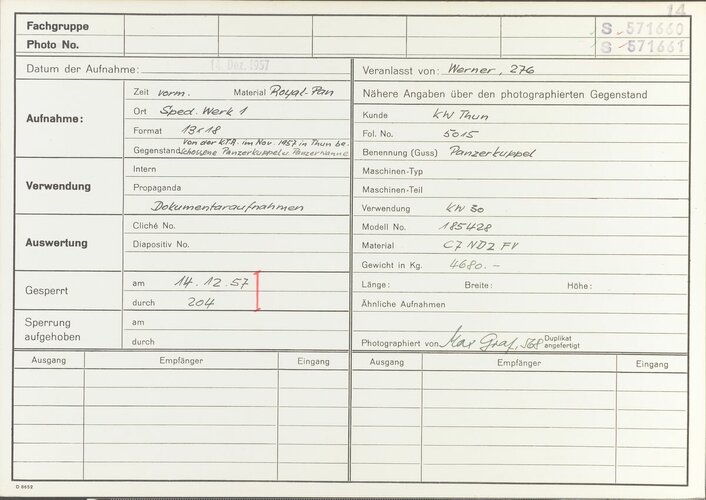 14
Fachgruppe
Photo No.
S 571660
S 571661
Datum der Aufnahme: 14. Dez. 1957
Aufnahme:
Zeit vorm. Material Royal-Pan
Ort Sped. Werk 1
Format 13x18
Gegenstand Von der K.T.A. im Nov. 1957 in Thun be-
schossene Panzerkuppel u. Panzerwanne
Verwendung
Intern
Propaganda
Dokumentaraufnahmen
Auswertung
Cliché No.
Diapositiv No.
Gesperrt
am 14.12.57
durch 204
Sperrung
aufgehoben
am
durch
Ausgang Empfänger Eingang
Veranlasst von: Werner, 276
Nähere Angaben über den photographierten Gegenstand
Kunde KW Thun
Fol. No. 5015
Benennung (Guss) Panzerkuppel
Maschinen-Typ
Maschinen-Teil
Verwendung KW 30
Modell No. 185428
Material C7 ND2 FV
Gewicht in Kg. 4680.-
Länge: Breite: Höhe:
Ähnliche Aufnahmen
Photographiert von Max Graf, 568 Duplikat
angefertigt
Ausgang Empfänger Eingang
D 8652